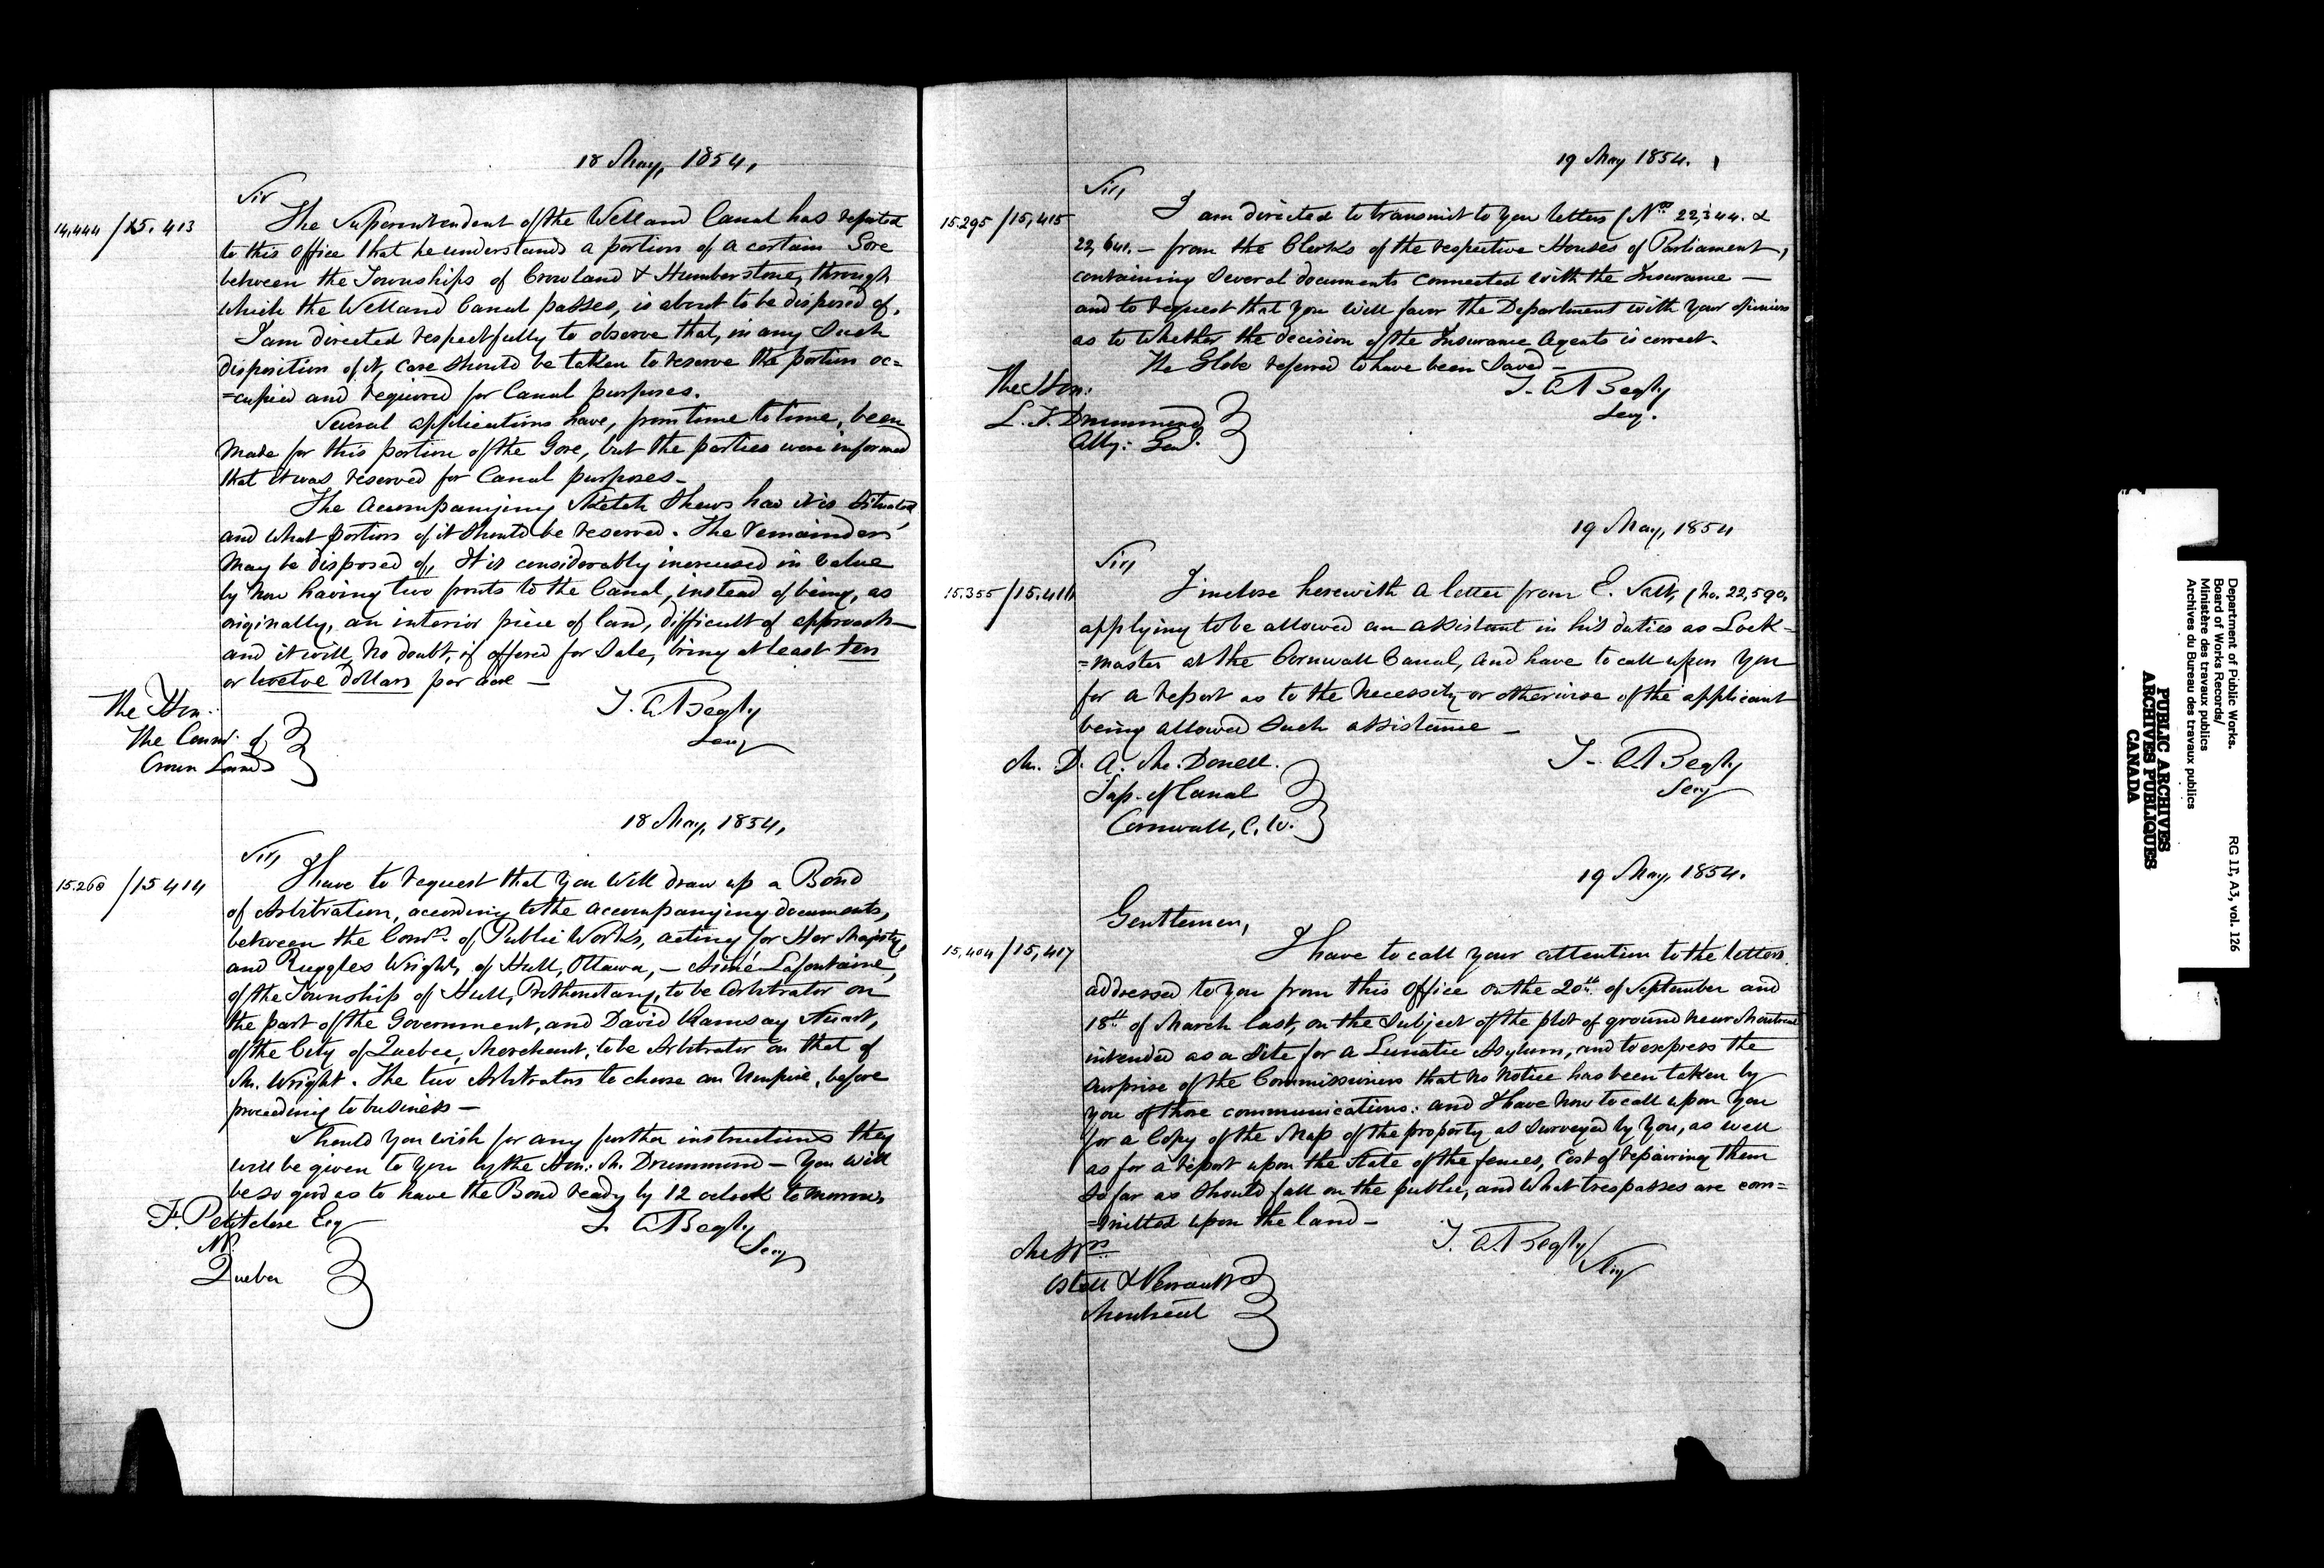 18 May, 1854,
Sir
14,444 / 15.413
The Superintendent of the Welland Canal has reported
to this Office that he understands a portion of a certain Gore
between the Townships of Crowland & Humberstone, through
which the Welland Canal passes, is about to be disposed of,
I am directed respectfully to observe that, in any such
disposition of it, care should be taken to reserve the portion oc=
=cupied and required for Canal purposes.
Several applications have, from time to time, been
made for this portion of the Gore, but the parties were informed
that it was reserved for Canal purposes -
The accompanying Sketch shews how it is situated,
and what portion of it should be reserved. The remainder
may be disposed of, It is considerably increased in value
by now having two fronts to the Canal, instead of being, as
originally, an interior piece of land, difficult of approach -
and it will, no doubt, if offered for Sale, bring at least ten
or twelve dollars per acre -
T. A. Begly
Secy
The Hon:
The Commr. of
Crown Lands
18 May, 1854,
Sir,
15.260 / 15 414
I have to request that you will draw up a Bond
of Arbitration, according to the accompanying documents,
between the Comrs. of Public Works, acting for Her Majesty,
and Ruggles Wright, of Hull, Ottawa, - Aimé Lafontaine,
of the Township of Hull, Prothonotary, to be Arbitrator on
the part of the Government, and David Ramsay Stuart,
of the City of Quebec, Merchant, to be Arbitrator on that of
Mr. Wright. The two Arbitrators to choose an Umpire, before
proceeding to business -
Should you wish for any further instructions they
will be given to you by the Hon: Mr. Drummond - You will
be so good as to have the Bond ready by 12 oclock tomorrow,
T. A. Begly
Secy
F. Petitclerc Esq
N.P.
Quebec
19 May 1854.
Sir,
15.295 / 15,415
I am directed to transmit to you letters (Nos. 22,344. &
22, - from the Clerks of the respective Houses of Parliament,
containing several documents connected with the Insurance -
and to request that you will favor the Department with your opinion
as to whether the decision of the Insurance Agents is correct.
The Globe referred to have been saved -
T. A. Begly
Secy.
The Hon:
L. T. Drummond
Atty: Genl.
19 May, 1854
Sir,
15.355 / 15.416
I inclose herewith a letter from E. (No. 22,590,
applying to be allowed an assistant in his duties as Lock=
=master at the Cornwall Canal, and have to call upon you
for a report as to the necessity or otherwise of the applicant
being allowed such assistance -
T. A. Begly
Secy
Mr. D. A. Mc.Donell.
Sup. of Canal
Cornwall, C. W.
19 May, 1854.
Gentlemen,
15,404 / 15,417
I have to call your attention to the letters
addressed to you from this Office on the 20th of September and
18th of March last, on the subject of the plot of ground near Montreal
intended as a Site for a Lunatic Asylum, and to express the
surprise of the Commissioners that no notice has been taken by
you of those communications: and I have now to call upon you
for a Copy of the Map of the property as surveyed by you, as well
as for a report upon the State of the fences, Cost of repairing them
so far as should fall on the public, and what trespasses are com=
=mitted upon the land -
T. A. Begly
Secy
Messrs
Ostell & Perrault
Montreal
Department of Public Works.
Board of Works Records/
Ministère des travaux publics
Archives du Bureau des travaux publics
RG 11, A3, vol. 126
PUBLIC ARCHIVES
ARCHIVES PUBLIQUES
CANADA